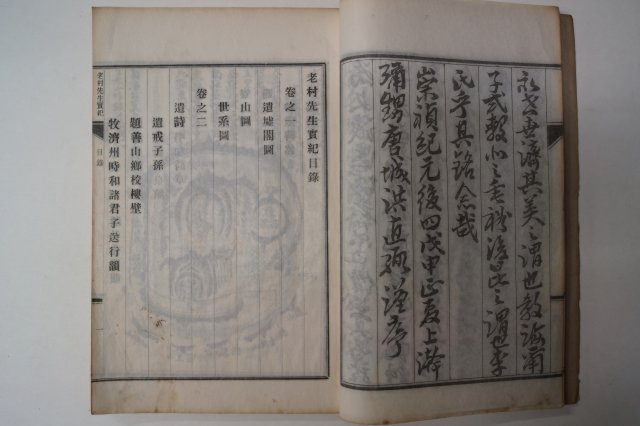 永世濟其美之謂也敎誨爾
子式穀似之垂裕後昆之謂李
氏乎其銘念哉
崇禎紀元後四戊申正夏上澣
彌甥唐城洪直弼謹序
老村先生實紀目錄
卷之一
遺墟閣圖
山圖
世系圖
卷之二
遺詩
遺戒子孫
題善山鄉校樓壁
牧濟州時和諸君子送行韻
老村先生實紀 目錄 一